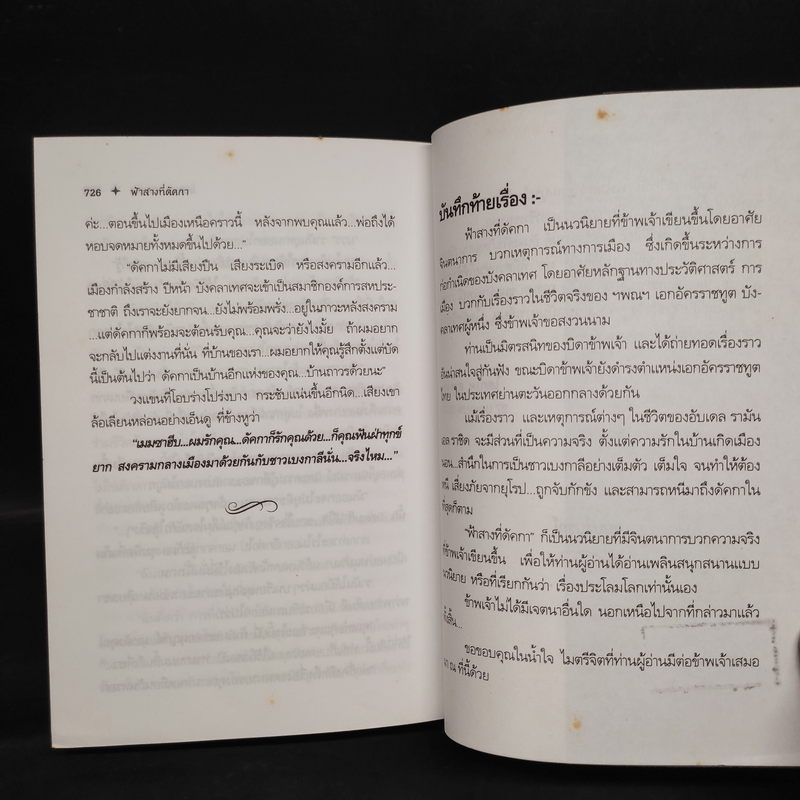 726 ✦ ฟ้าสางที่ดัคกา
ค่ะ...ตอนขึ้นไปเมืองเหนือคราวนี้ หลังจากพบคุณแล้ว...พ่อถึงได้
หอบจดหมายทั้งหมดขึ้นไปด้วย...”
“ดัคกาไม่มีเสียงปืน เสียงระเบิด หรือสงครามอีกแล้ว...
เมืองกำลังสร้าง ปีหน้า บังคลาเทศจะเข้าเป็นสมาชิกองค์การสหประ-
ชาชาติ ถึงเราจะยังยากจน...ยังไม่พร้อมพรั่ง...อยู่ในภาวะหลังสงคราม
...แต่ดัคกาก็พร้อมจะต้อนรับคุณ...คุณจะว่ายังไงมั้ย ถ้าผมอยาก
จะกลับไปแต่งงานที่นั่น ที่บ้านของเรา...ผมอยากให้คุณรู้สึกตั้งแต่บัด
นี้เป็นต้นไปว่า ดัคกาเป็นบ้านอีกแห่งของคุณ...บ้านถาวรด้วยนะ”
วงแขนที่โอบร่างโปร่งบาง กระชับแน่นขึ้นอีกนิด...เสียงเขา
ล้อเลียนหล่อนอย่างเอ็นดู ที่ข้างหูว่า
“เมมซาฮีบ...ผมรักคุณ...ดัคกาก็รักคุณด้วย...ก็คุณฟันฝ่าทุกข์
ยาก สงครามกลางเมืองมาด้วยกันกับชาวเบงกาลีนั่น...จริงไหม...”
บันทึกท้ายเรื่อง :-
ฟ้าสางที่ดัคกา เป็นนวนิยายที่ข้าพเจ้าเขียนขึ้นโดยอาศัย
จินตนาการ บวกเหตุการณ์ทางการเมือง ซึ่งเกิดขึ้นระหว่างการ
ก่อกำเนิดของบังคลาเทศ โดยอาศัยหลักฐานทางประวัติศาสตร์ การ
เมือง บวกกับเรื่องราวในชีวิตจริงของ ฯพณฯ เอกอัครราชทูต บัง-
คลาเทศผู้หนึ่ง ซึ่งข้าพเจ้าขอสงวนนาม
ท่านเป็นมิตรสนิทของบิดาข้าพเจ้า และได้ถ่ายทอดเรื่องราว
อันน่าสนใจสู่กันฟัง ขณะบิดาข้าพเจ้ายังดำรงตำแหน่งเอกอัครราชทูต
ไทย ในประเทศย่านตะวันออกกลางด้วยกัน
แม้เรื่องราว และเหตุการณ์ต่างๆ ในชีวิตของอับเดล รามัน
เอล ราชิด จะมีส่วนที่เป็นความจริง ตั้งแต่ความรักในบ้านเกิดเมือง
นอน...สำนึกในการเป็นชาวเบงกาลีอย่างเต็มตัว เต็มใจ จนทำให้ต้อง
หนี เสี่ยงภัยจากยุโรป...ถูกจับกักขัง และสามารถหนีมาถึงดัคกาใน
ที่สุดก็ตาม
“ฟ้าสางที่ดัคกา” ก็เป็นนวนิยายที่มีจินตนาการบวกความจริง
ที่ข้าพเจ้าเขียนขึ้น เพื่อให้ท่านผู้อ่านได้อ่านเพลินสนุกสนานแบบ
นวนิยาย หรือที่เรียกกันว่า เรื่องประโลมโลกเท่านั้นเอง
ข้าพเจ้าไม่ได้มีเจตนาอื่นใด นอกเหนือไปจากที่กล่าวมาแล้ว
ทั้งสิ้น...
ขอขอบคุณในน้ำใจ ไมตรีจิตที่ท่านผู้อ่านมีต่อข้าพเจ้าเสมอ
มา ณ ที่นี้ด้วย